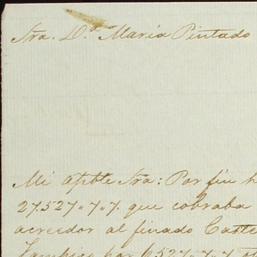 Sra. D.ª Maria Pintado
Mi apble Sra: Por fin
27.527.7.7. que cobraba
acreedor al finado
por 6527.7.7